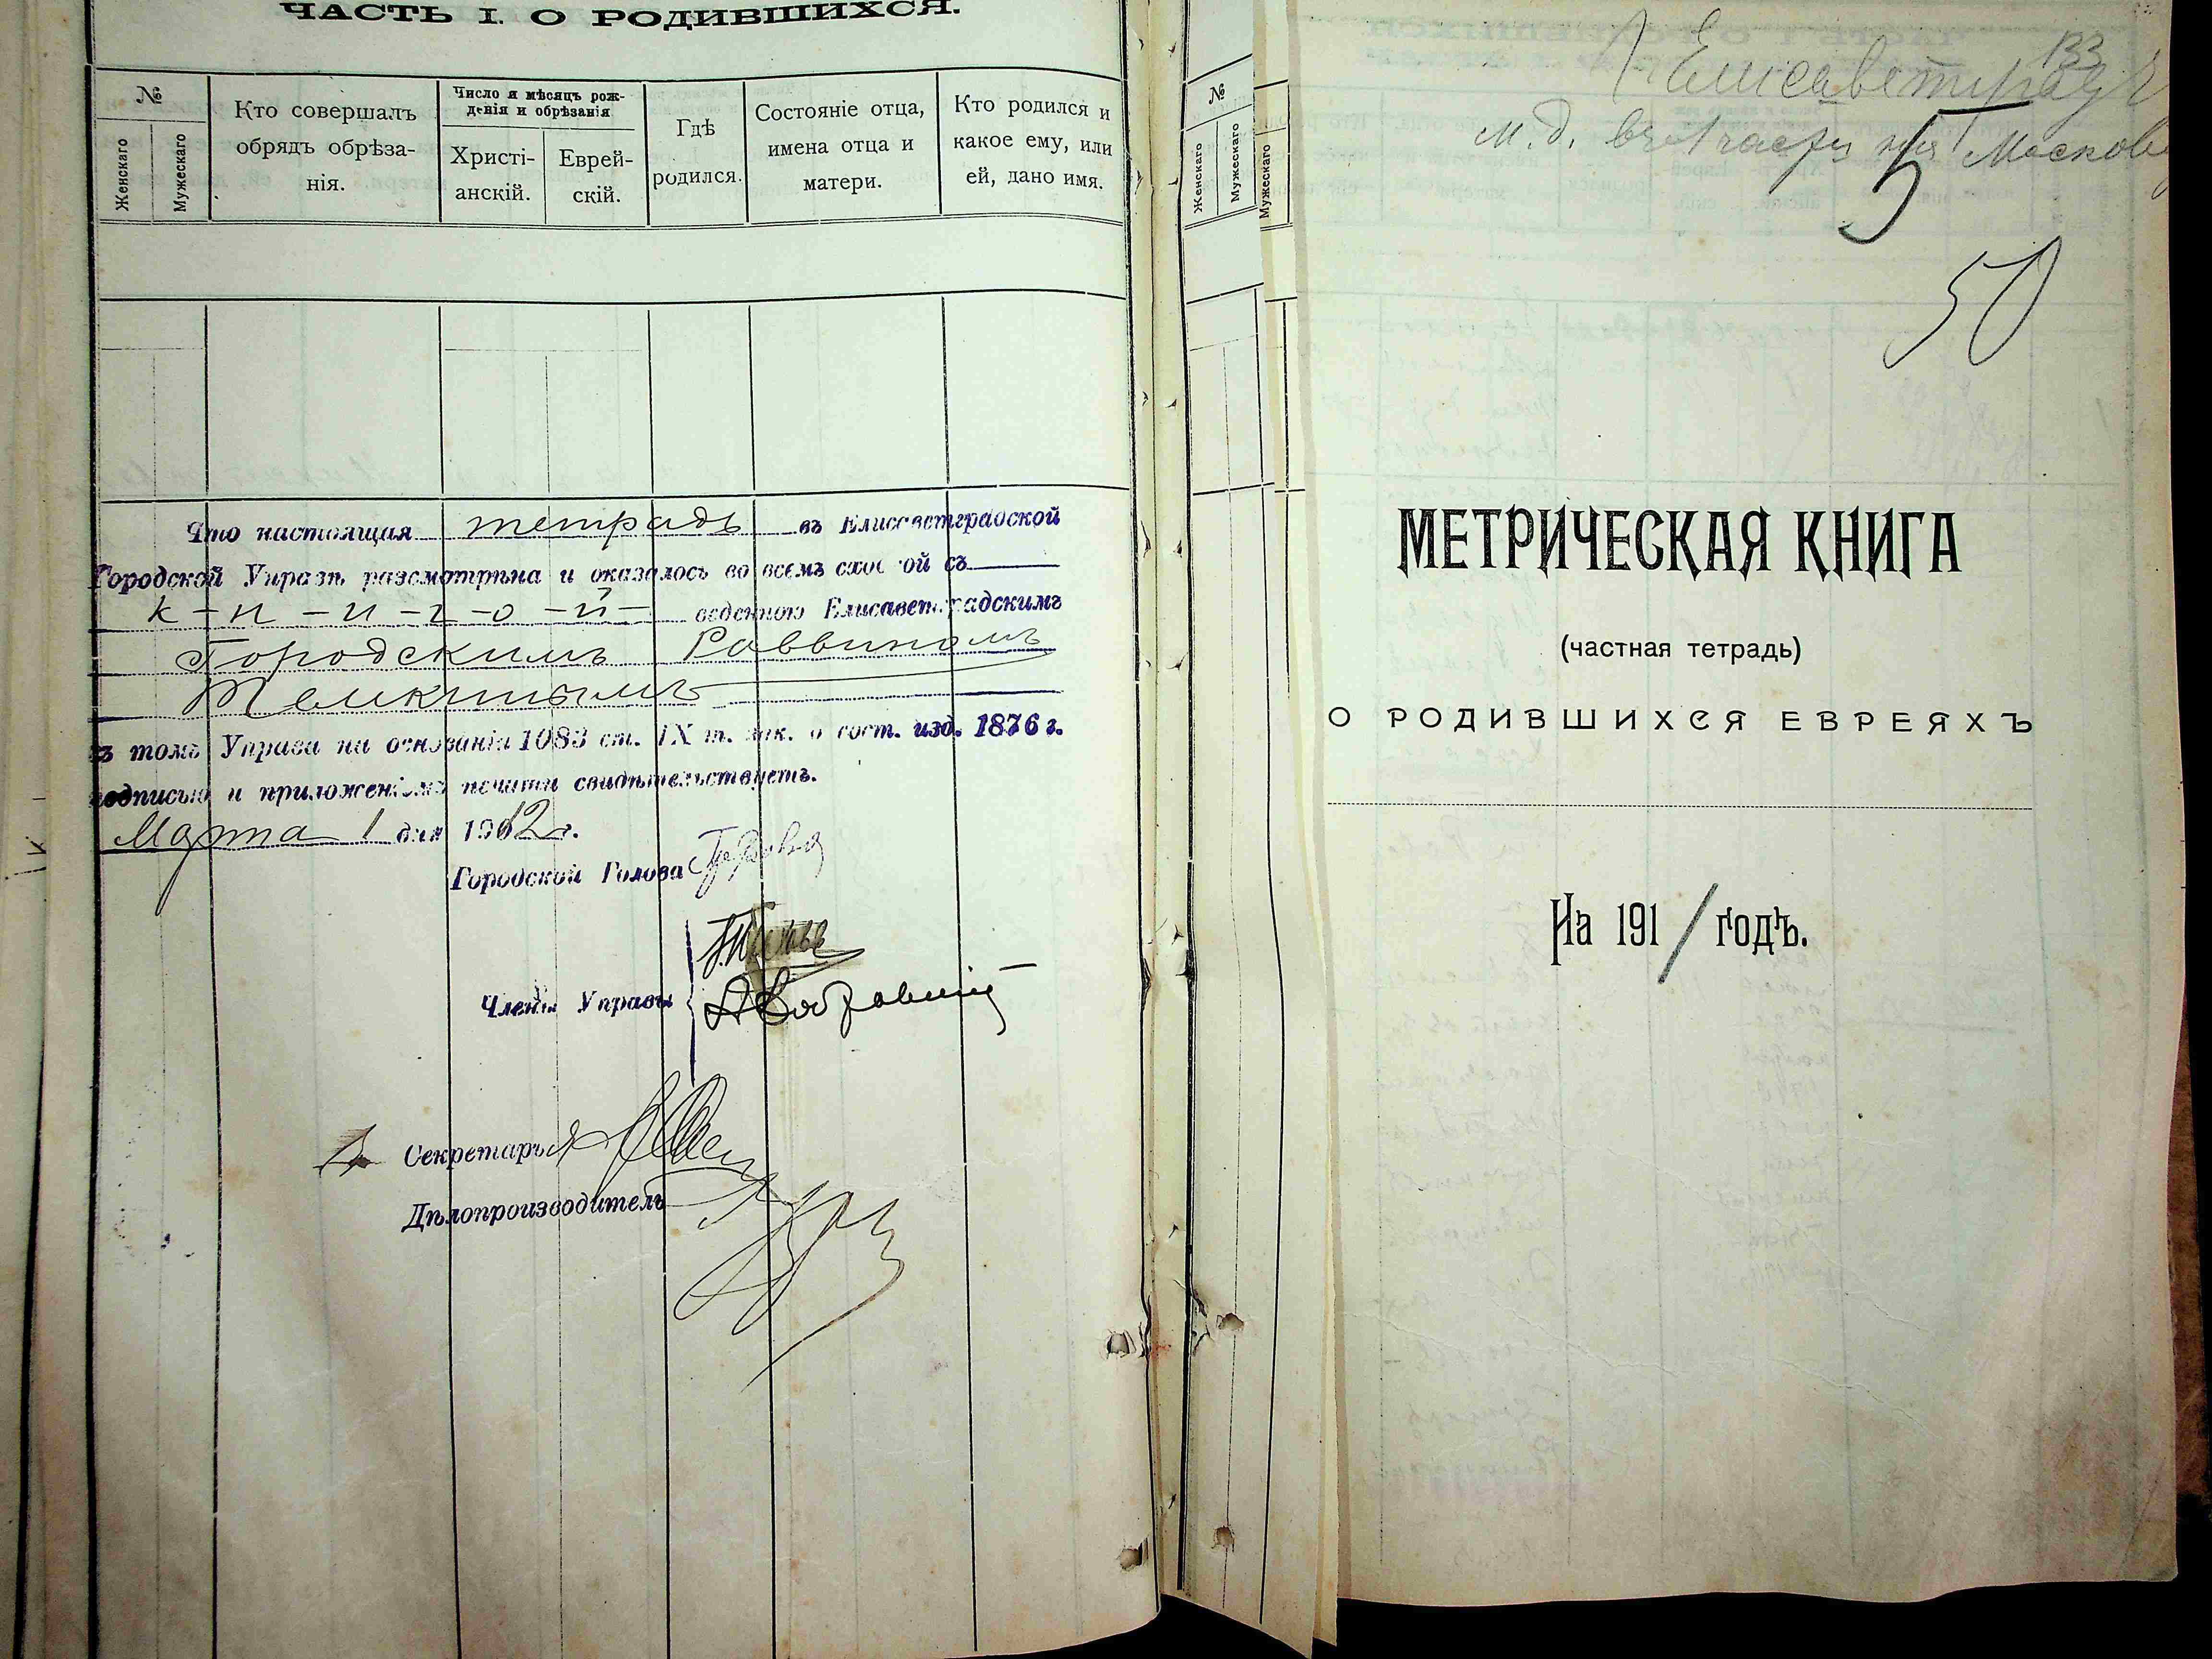 ЧАСТЬ I. О РОДИВШИХСЯ.
№
Женскаго
Мужескаго
Кто совершалъ
обрядъ обрѣза-
нія.
Число и мѣсяцъ рож-
денія и обрѣзанія
Христі-
анскій.
Еврей-
скій.
Гдѣ
родился.
Состояніе отца,
имена отца и
матери.
Кто родился и
какое ему, или
ей, дано имя.
Что настоящая тетрадь въ Елисаветградской
Городской Управѣ разсмотрѣна и оказалось во всемъ сход ой съ
к-н-и-г-о-й- веденною Елисаветградскимъ
Городскимъ Раввиномъ
Темкинымъ
въ томъ Управа на основаніи 1083 ст. IX т. зак. о сост. изд. 1876 г.
подписью и приложеніемъ печати свидѣтельствуетъ.
Марта 1 дня 1912 г.
Городской Голова
Члены Управы
Секретарь
Дѣлопроизводитель
№
Женскаго
Мужескаго
Мужескаго
133
Елисаветградъ
м. д. въ 1 части
5
50
МЕТРИЧЕСКАЯ КНИГА
(частная тетрадь)
О РОДИВШИХСЯ ЕВРЕЯХЪ
На 1911 годъ.